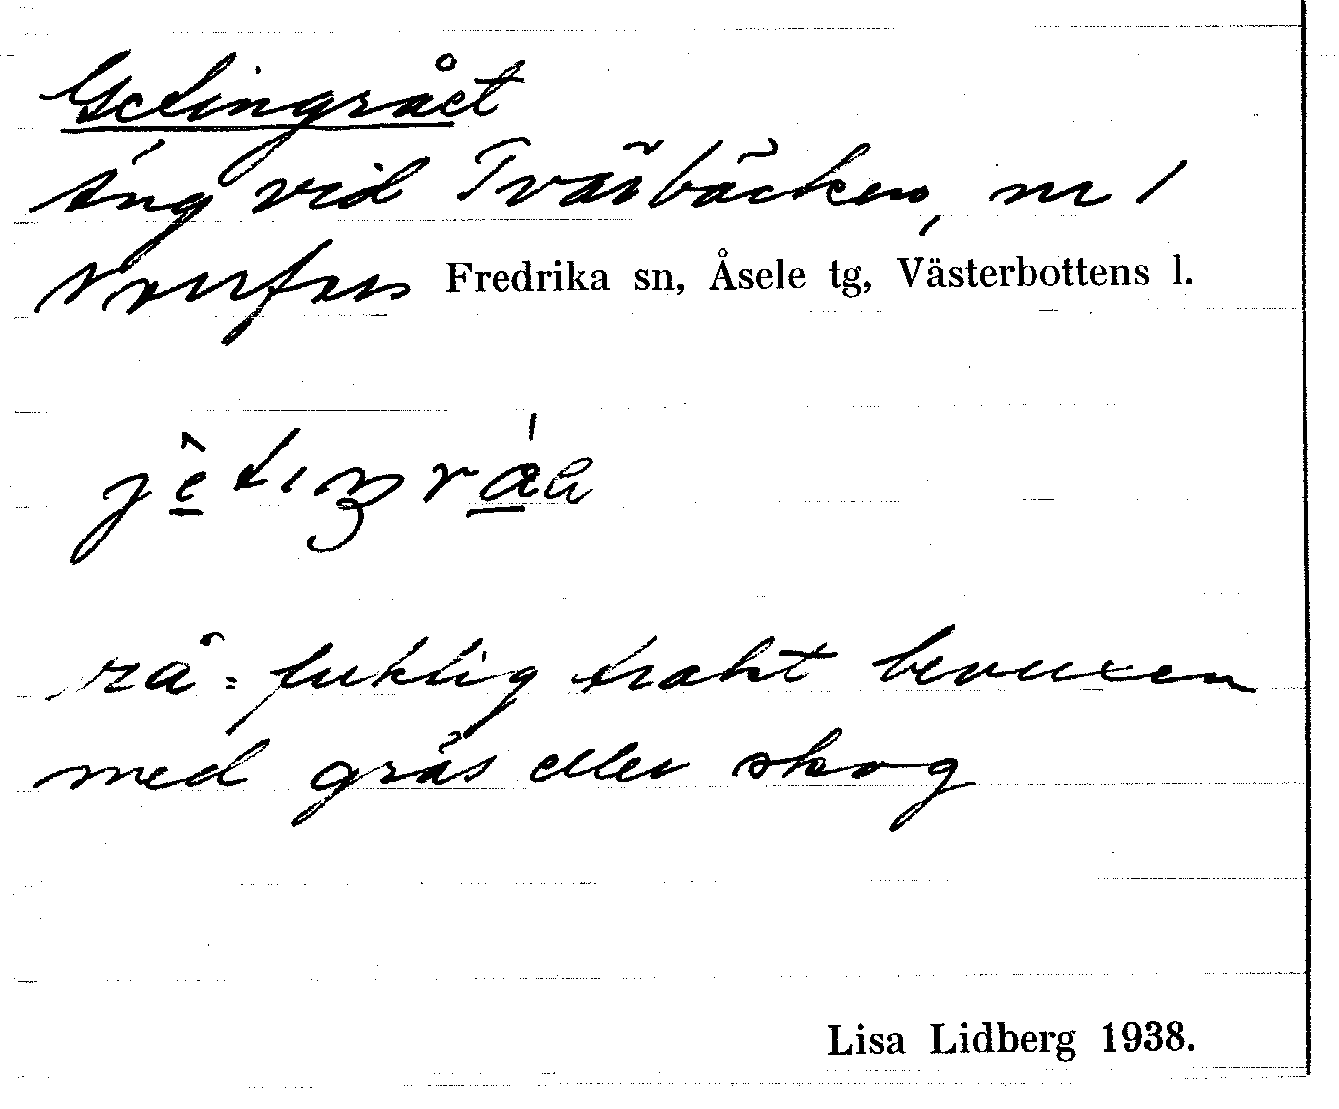 Getingrået
Äng vid Tvärbäcken, nr 1
Fredrika sn, Åsele tg, Västerbottens l.
rå = fuktig trakt bevuxen
med gräs eller skog
Lisa Lidberg 1938.